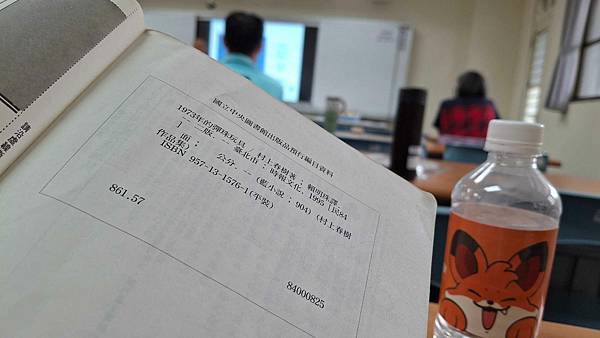 國立中央圖書館出版品預行編目資料
1973年的彈珠玩具 / 村上春樹著 ; 賴明珠譯.
十二版. -- 臺北市 : 時報文化, 1995 [民84
面 ; 公分. -- (藍小說 ; 904) (村上春樹
作品集)
ISBN 957-13-1576-1(平裝)
861.57
84000825